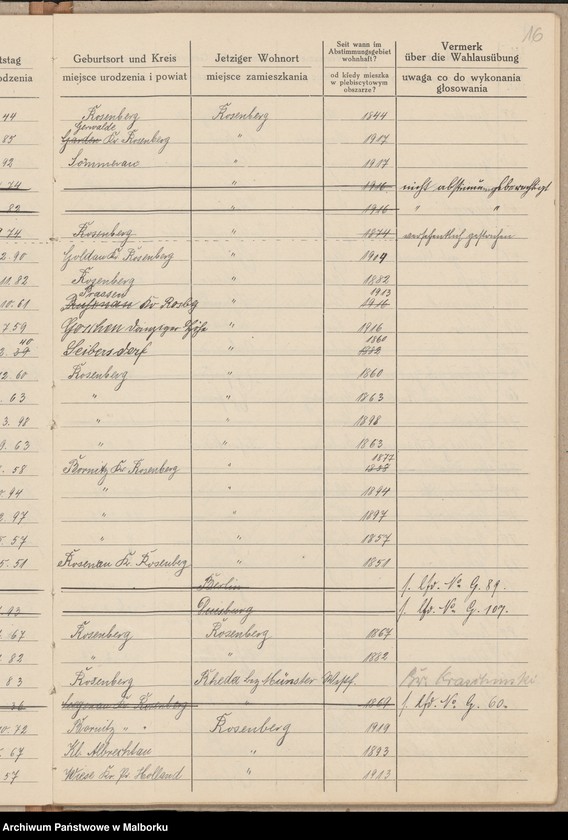 16
tstag
odzenia
Geburtsort und Kreis
miejsce urodzenia i powiat
Jetziger Wohnort
miejsce zamieszkania
Seit wann im
Abstimmungsgebiet
wohnhaft?
od kiedy mieszka
w plebiscytowym
obszarze?
Vermerk
über die Wahlausübung
uwaga co do wykonania
głosowania
44 Rosenberg Rosenberg 1844
Gerwalde
85 Garden Kr Rosenberg " 1917
92 Sommerau " 1917
74 " 1916 nicht abstimmungsberechtigt
82 " 1916 " "
74 Rosenberg " 1874 versehentlich gestrichen
2.90 Goldau Kr Rosenberg " 1919
11.82 Rosenberg " 1882
Praassen 1913
10.61 Kr Rosbg " 1916
7.59 Goschen Danziger Höhe " 1916
40 1860
3. 39 Seibersdorf "
2.60 Rosenberg " 1860
63 " " 1863
3.98 " " 1898
9.63 " " 1863
1877
58 Bornitz Kr Rosenberg "
94 " " 1894
2.97 " " 1897
57 " " 1857
5.51 Rosenau Kr Rosenberg " 1851
Berlin f. lfd. No G. 89.
93 Duisburg f. lfd. No G. 107.
67 Rosenberg Rosenberg 1867
82 " 1882
83 Rosenberg Rheda bez Münster Westf.
36 Kr Rosenberg " 1869 f. lfd. No G. 60.
10.72 Bornitz " " Rosenberg 1919
67 Kl. Albrechtau " 1893
57 Wiese Kr. Pr. Holland " 1913
Archiwum Państwowe w Malborku